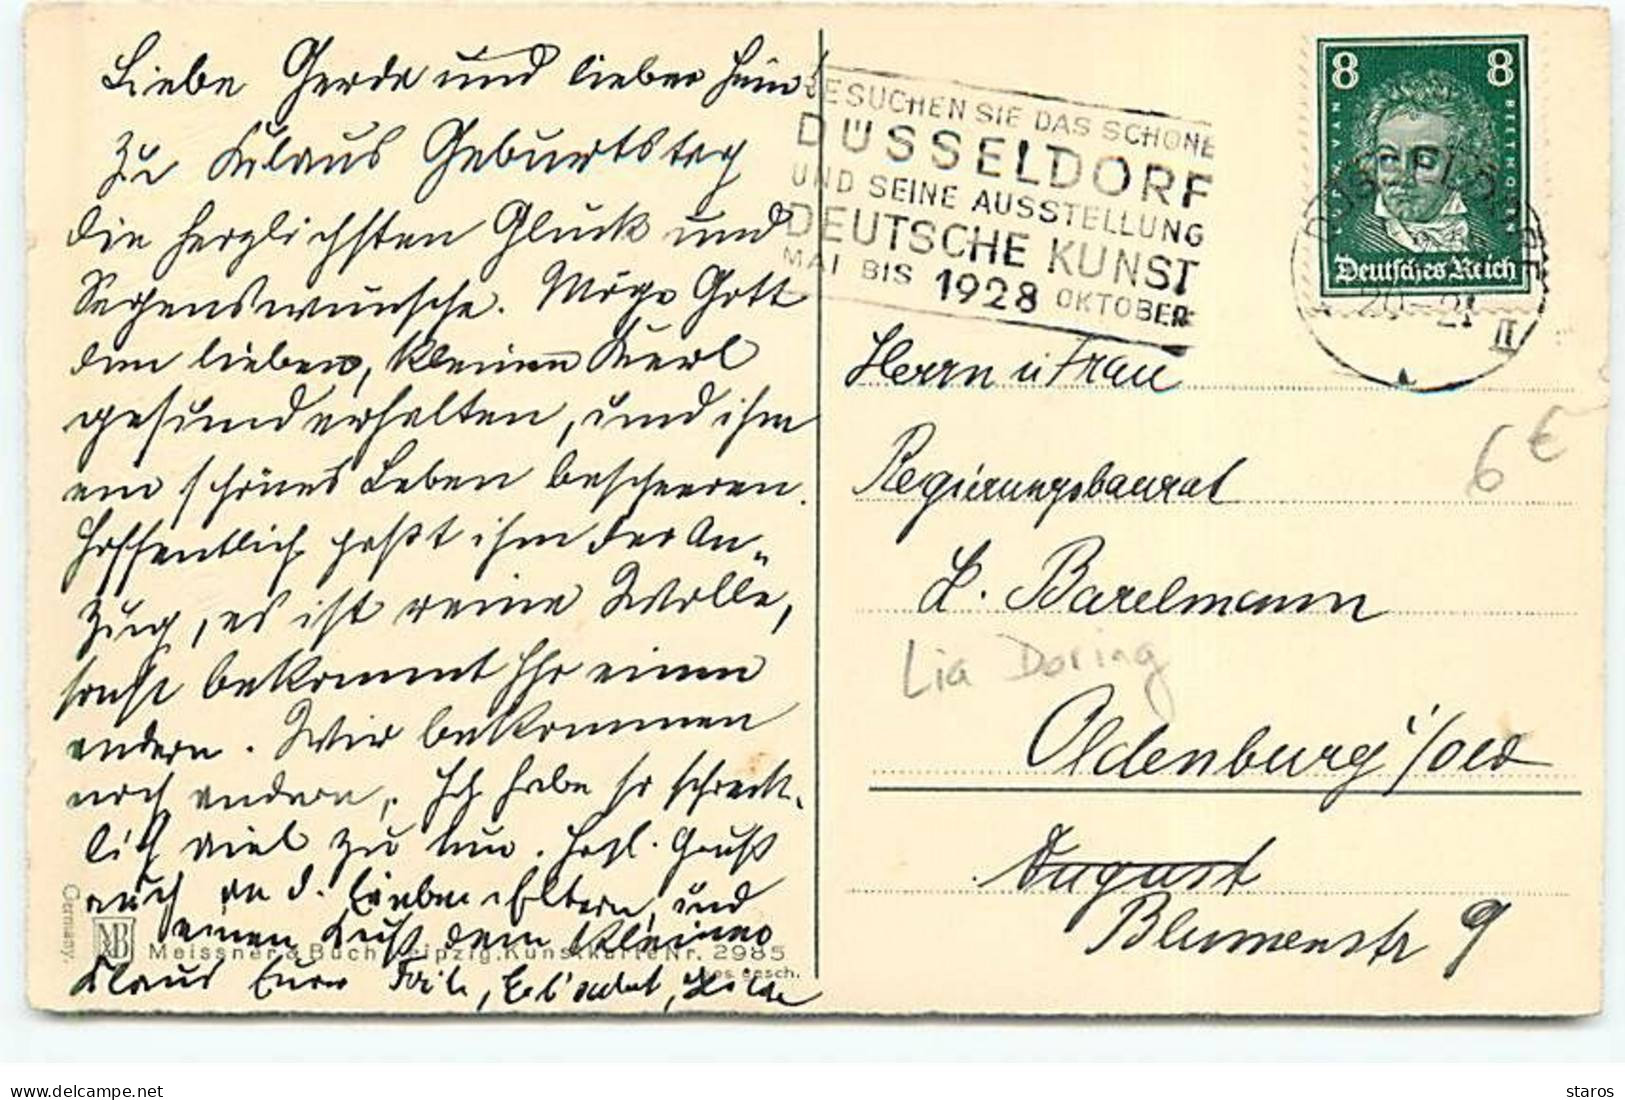 Liebe Gerda und lieber Hein
zu Klaus Geburtstag
die herzlichsten Glück und
Segenswünsche. Möge Gott
den lieben, kleinen Kerl
gesund erhalten, und ihm
ein schönes Leben bescheeren.
Hoffentlich paßt ihm der An-
zug, es ist reine Wolle,
sonst bekommt Ihr einen
andern. Wir bekommen
noch andere, Ich habe so schreck-
lich viel zu tun. Herzl. Gruß
auch an d. lieben Eltern, und
einen Kuß dem kleinen
Klaus Eure Hilde
Germany.
MB
Meissner & Buch Leipzig. Kunstkarte Nr. 2985
ges. gesch.
BESUCHEN SIE DAS SCHÖNE
DÜSSELDORF
UND SEINE AUSSTELLUNG
DEUTSCHE KUNST
MAI BIS 1928 OKTOBER
8 8
LUDW. VAN BEETHOVEN
Deutsches Reich
DÜSSELDORF
20-21
II
Herrn u Frau
Regierungsbaurat
6 €
L. Barelmann
Lia Doring
Oldenburg i/Old
August
Blumenstr 9
delcampe.net
staros